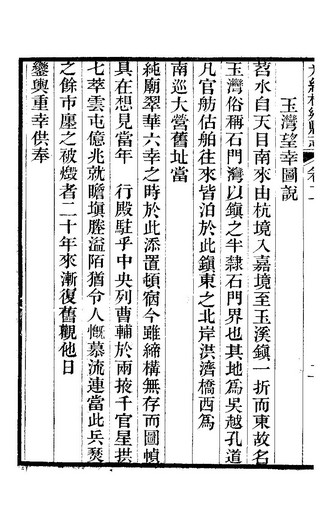 玉灣望幸圖説
苕水自天目南來由杭境入嘉境至玉溪鎮一折而東故名
玉灣俗稱石門灣以鎮之半隸石門界也其地爲吳越孔道
凡官舫估舶往來皆泊於此鎮東之北岸洪濟橋西爲
南巡大營舊址當
純廟翠華六幸之時於此添置頓宿今雖締構無存而圖幀
具在想見當年 行殿駐乎中央列曹輔於兩掖千官星拱
七萃雲屯億兆就瞻塡塍溢陌猶令人慨慕流連當此兵燹
之餘市廛之被燬者二十年來漸復舊觀他日
鑾輿重幸供奉